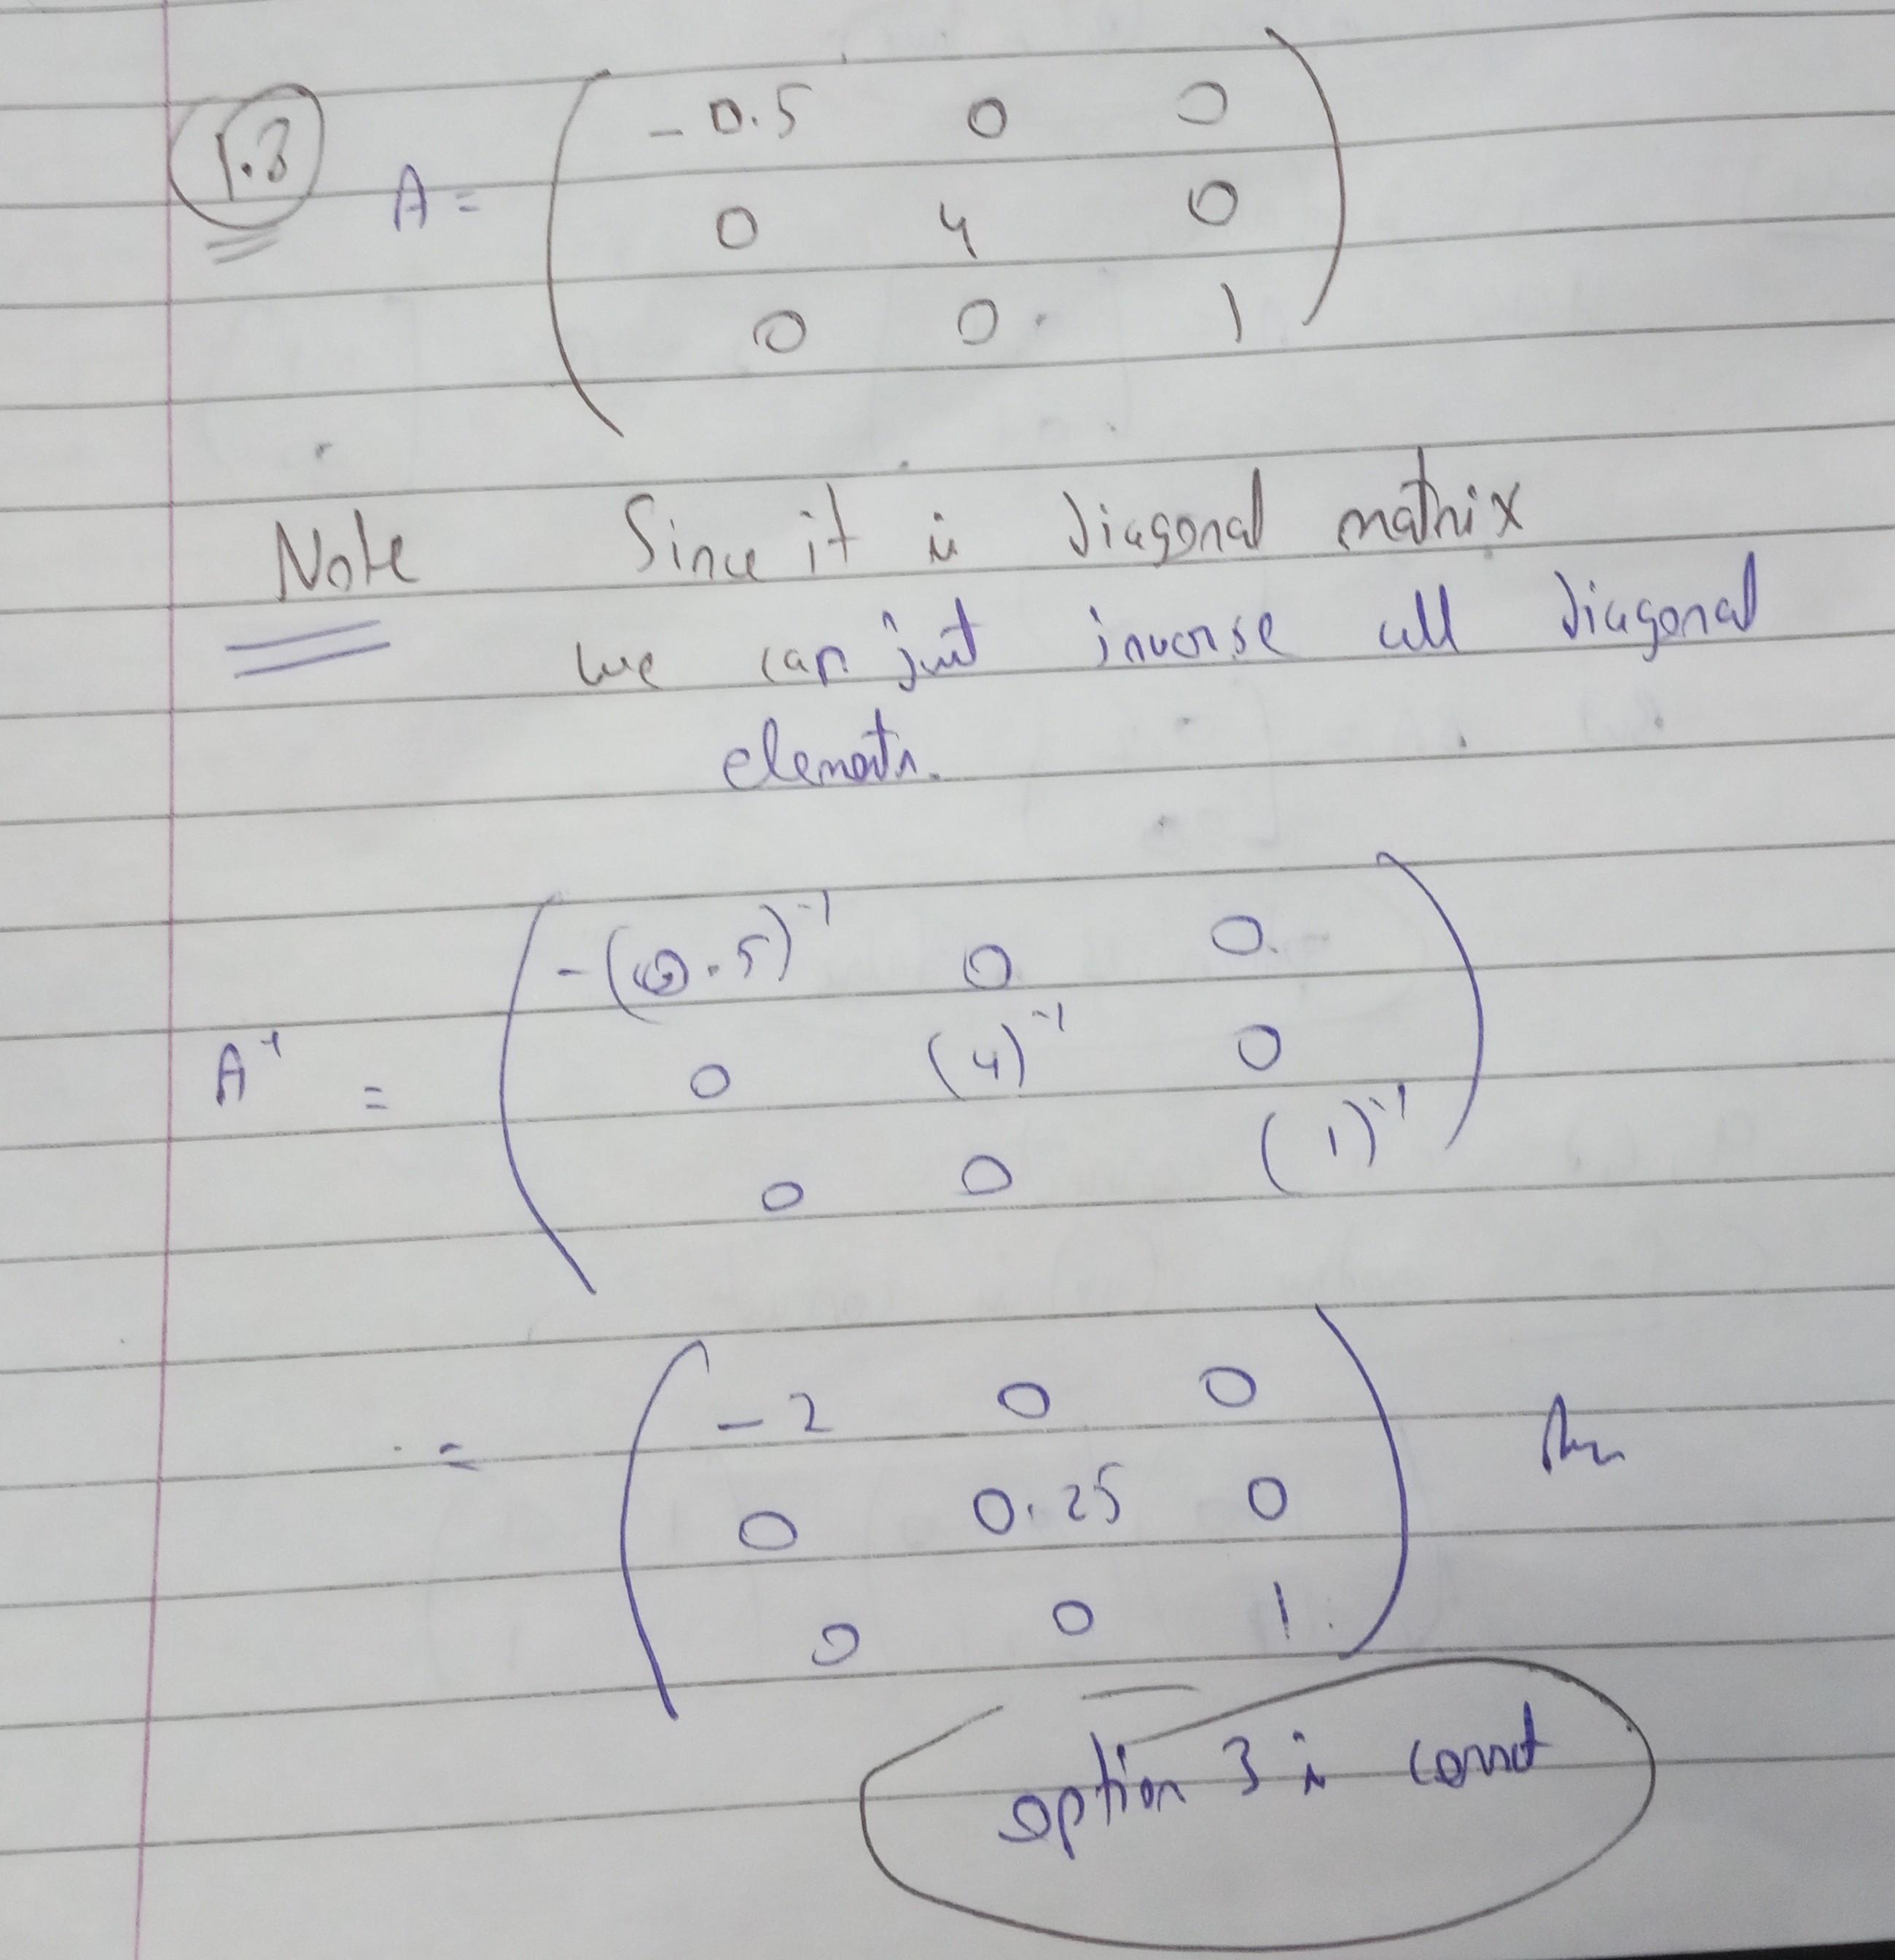 1.3
A = ( -0.5 0 0
0 4 0
0 0 1 )
Note Since it is diagonal matrix
we can just inverse all diagonal
elements.
A⁻¹ = ( -(0.5)⁻¹ 0 0
0 (4)⁻¹ 0
0 0 (1)⁻¹ )
= ( -2 0 0 ) Ans
0 0.25 0
0 0 1
option 3 is correct